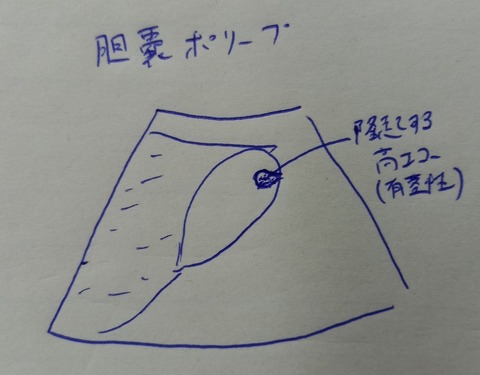 胆嚢ポリープ
隆起する
高エコー
(有茎性)